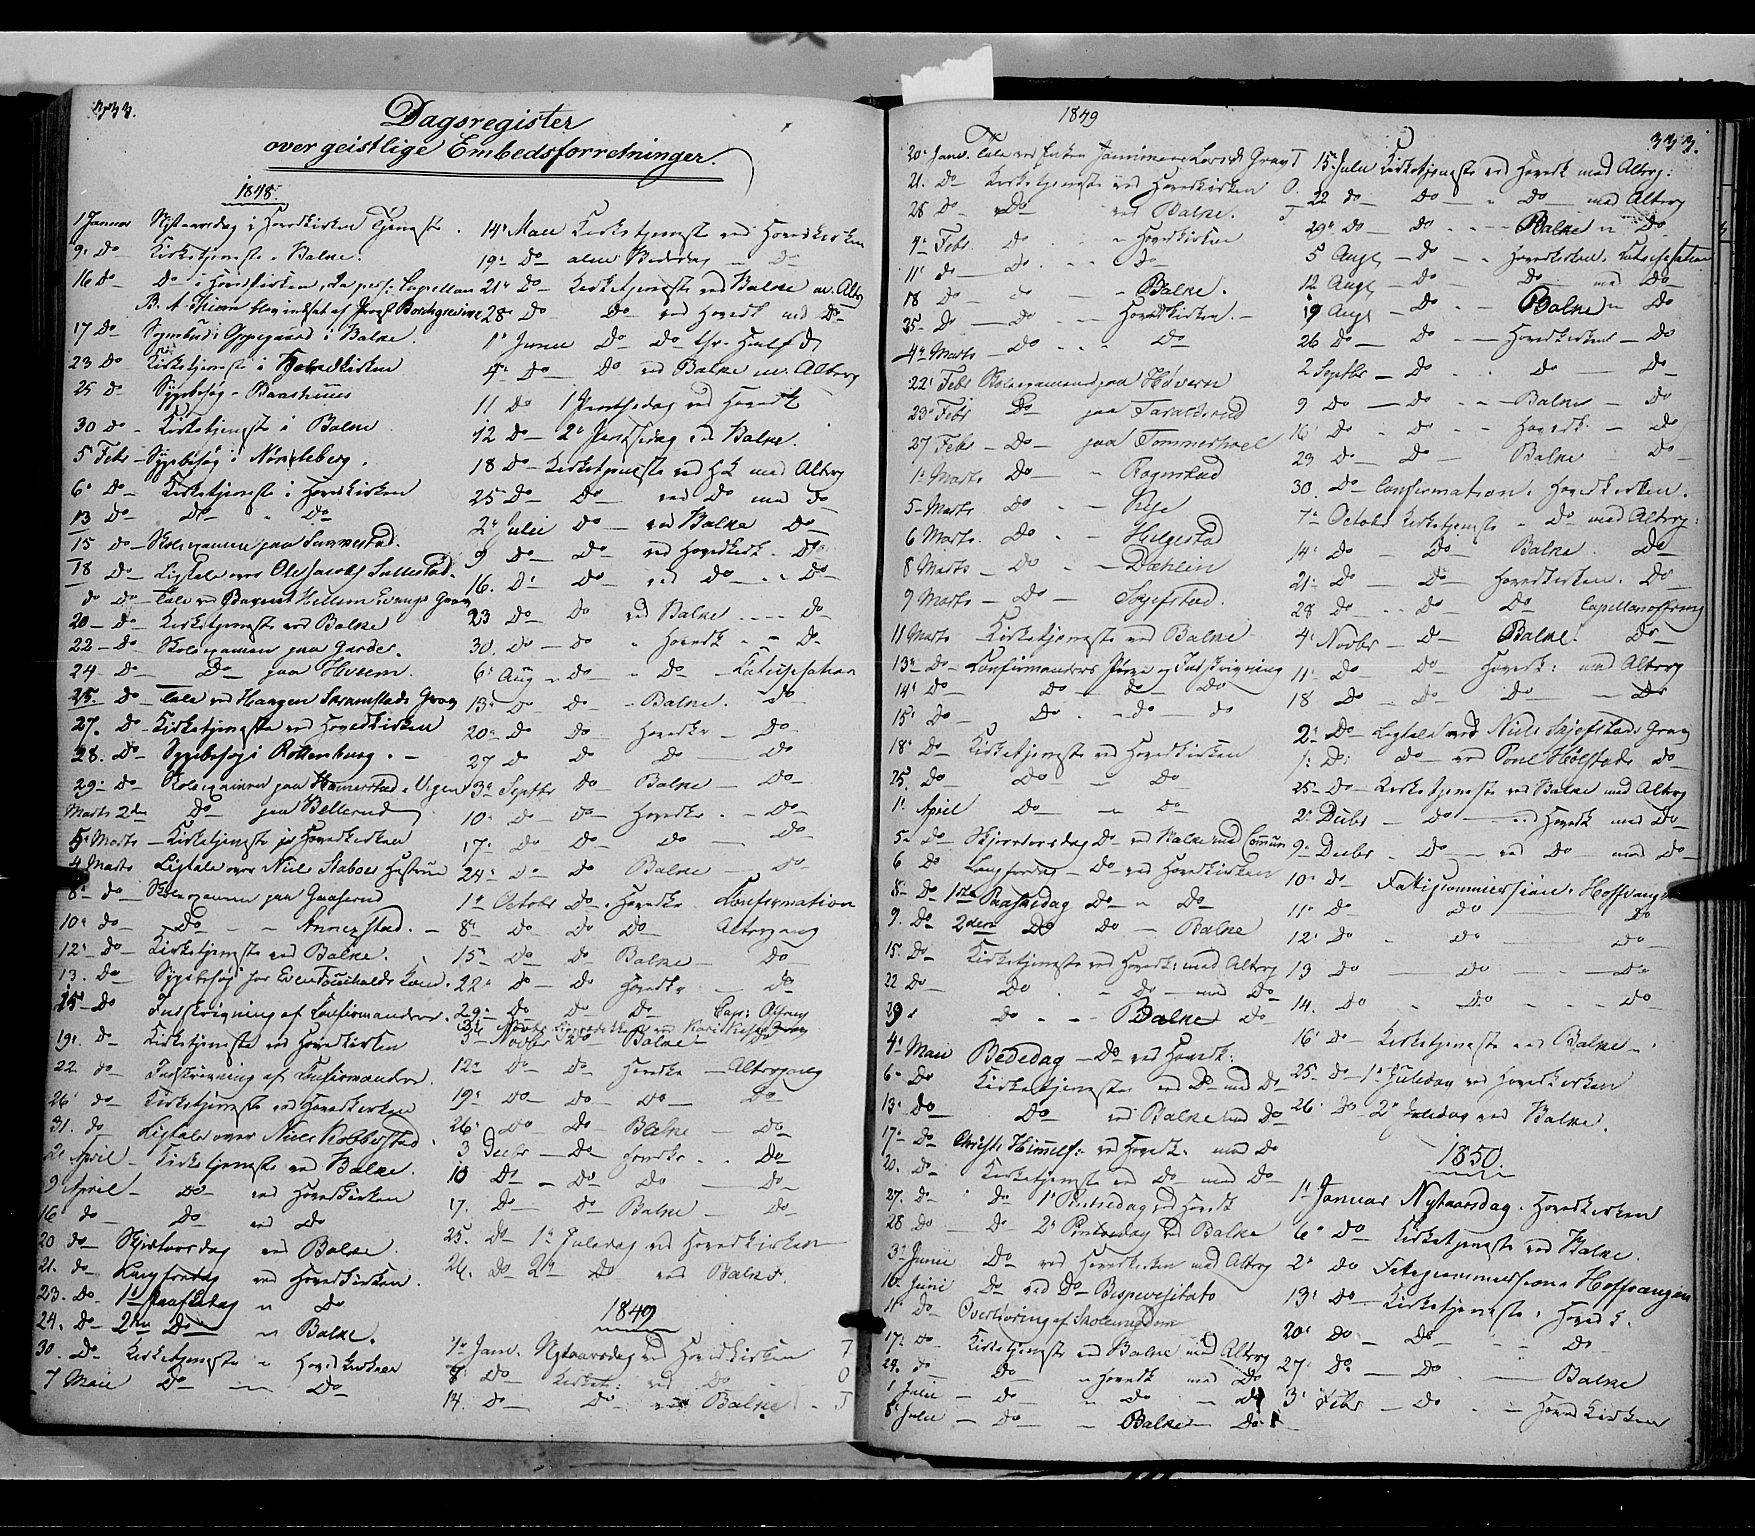 333.
Dagsregister
over geistlige Embedsforretninger.
1848.
1 Januar Nytaarsdag i Hovedkirken Tjeneste.
9. Do Kirketjeneste i Balke.
16 Do Do i Hovedkirken, da pers: Capellan
B. A. blev indsat af Provst Borchgrevink
17 Do Sognebud i i Balke.
23 Do Kirketjeneste i Hovedkirken
25 Do Sygebesøg
30 Do - Kirketjeneste i Balke
5 Febr - Sygebesøg i
6 Do - Kirketjeneste i Hovedkirken
13 Do Do " Do
15 Do - Skoleexamen paa
18 Do - Ligtale over Ole Jacobs
Do Do - Tale ved Grav
20 - Do - Kirketjeneste ved Balke
22 - Do - Skoleexamen paa Garder.
24 - Do Do paa
25. Do - Tale ved Grav
27. Do - Kirketjeneste ved Hovedkirken
28. Do - Sygebesøg i Rottenburg. -
29. Do - Skoleexamen paa
Marts 2den Do paa
5 Marts - Kirketjeneste i Hovedkirken
4 Marts Ligtale over Niels Staboes Hustrue
8 Do - Skoleexamen paa
10 Do - Do -
12 Do - Kirketjeneste ved Balke.
13. Do - Sygebesøg hos Even
15 Do Indskrivning af Confirmander.
19. Do - Kirketjeneste ved Hovedkirken
22 Do - Indskrivning af Confirmander.
26 Do - Kirketjeneste ved Hovedkirken
31. Do - Ligtale over Niels
2 April - Kirketjeneste ved Balke.
9 April - Do - ved Hovedkirken
16 Do - Do ved Do
20 Do - Skjærtorsdag ved Balke.
21. Do - Langfredag ved Hovedkirken.
23. Do 1ste Paaskedag " Do
24. Do 2den Do " Balke.
30. Do Kirketjeneste " Hovedkirken
7 Maii Do - " - Do
14 Maii Kirketjeneste ved Hovedkirken
19 Do alm: Bededag - Do
21 Do - Kirketjeneste ved Balke m. Altrg
28 Do Do ved Hovedk med Do
1 Junii Do Do Chr. Himlf. D
4 Do - Do ved Balke m. Altrg
11 Do 1 Pintsedag ved Hovedk
12 Do - 2 Pintsedag ved Balke.
18 Do - Kirketjeneste ved HK med Altrg
25 Do - Do - ved Do med Do
2 Julii Do - ved Balke Do -
9 Do - Do ved Hovedkirk. Do
16. Do Do ved Do - - Do
23 Do Do ved Balke - - - Do
30. Do - Do " Hovedk - - Do
6 Aug - Do - " Do - Catechisation
13 Do Do - Balke. Do
20 Do Do Hovedk - Do
27 Do Do Do - Do
3 Septbr Do Balke - Do -
10 Do - Do - Hovedk - - Do -
17. Do Do Do Do
24. Do Do Balke - Do
1 Octobr Do - Hovedk Confirmation
8 Do Do Do Altergang
15 Do Do Balke - Do
22 Do - Do Hovedk - Do
29 Do Do Do Cap: Offring
5 Novbr Do Balke Do
12 Do - Do Hovedk - Altergang
19. Do - Do - Do - Do
26. Do Do - Balke - Do
3 Decbr - Do - Hovedk. - Do
10 Do - Do Do - Do -
17. Do - Do Balke - Do
25. Do 1 Juledag ved Hovedkirken -
26. Do 2den Do ved Balke.
1849
1 Janv. Nytaarsdag ved Hovedkirken T
8 Do - Kirket: ved Do O
14. Do - Do - ved Balke - T
1849
333.
20 Janv. Tale ved Grav T
21. Do Kirketjeneste ved Hovedkirken O.
28 Do - Do ved Balke. T
4 Febr Do - " Hovedkirken
11 Do - Do - - Do
18 Do - Do - - Balke.
25 - Do - Do - - Hovedkirken. -
4 Marts - Do - - Do
22 Febr Skoleexamen paa Høvern
23 Febr Do paa
27 Febr - Do - paa
1 Marts Do - " Rognstad
5 Marts Do - -
6 Marts. Do - - Helgestad
8 Marts - Do - - Dæhlin
9 Marts - Do - Skjefstad.
11 Marts Kirketjeneste ved Balke -
13 Do - Confirmanders Prøve og Indskrivning
14 Do Do - Do - Do
15. Do - Do - - Do - Do
18 Do Kirketjeneste ved Hovedkirken
25. Do Do - Do
1 April Do - " Do
5 - Do - Skjærtorsdag Do - ved Balke med Commun
6 Do Langfredag - Do - ved Hovedkirken
8 - Do 1ste Paaskedag Do - " Do
9. Do 2den Do Do - Balke
15. Do - Kirketjeneste ved Hovedk: med Altrg
22 Do - Do - " Do - med Do
29 Do - - Balke Do
4 Maii Bededag - Do ved Hovedk:
6 - Do Kirketjeneste ved Do med Do
13 Do Do ved Balke med Do
17. Do Christi Himmelf: ved Hovedk. med Do
20. Do - Kirketjeneste ved Do - med Do -
27. Do - Do 1 Pintsedag ved Hovedk
28 Do - Do 2 Pintsedag ved Balke
3 Junii Do - ved Hovedkirken med Altrg
10 Junii Do - ved Do - Bispevisitats
11 Do Overhøring af Skoleungdom
17: Do - Kirketjeneste ved Balke med Altrg
24. Do Do " Hovedk med Do
1 Julii - Do - " Do - " Do
8 Julii - Do - - Balke - Do -
15. Julii Kirketjeneste ved Hovedk med Altrg:
22 Do - Do - " Do - med Altrg
29 Do - Do - - - Balke " Do
5 Aug - Do - - Hovedkirken. Catechisation
12 Aug - Do - Do - med Do -
19 Aug - Do - - Balke " Do
26 Do - Do - - Hovedkirken - Do
2 Septbr - Do - - Do - Do
9 Do - Do - - Balke - Do
16 Do - Do - Hovedk - Do
23 Do - Do - Balke Do -
30. Do - Confirmation. Hovedkirken.
7 Octobr Kirketjeneste - Do med Altrg:
14 Do - Do - Balke. Do
21 Do - Do Hovedkirken. Do
28 Do - - Do - Do Capellansoffring
4 Novbr - Do Balke. Do
11. Do - Do - Hovedk: med Altrg
18 Do - Do - Do - Do
2. Do - Ligtale ved Niels Skjefstads Grav
1. Do: Do - ved Poul Do
25 - Do - Kirketjeneste ved Balke med Altrg
2 Decbr - Do - ved Hovedk med Do
9 Decbr - Do - ved Do - med Do
10 Do - Fattigcommission. Hoffvangen
11 Do - Do Do
12. Do - Do - Do
13 Do - Do - - Do
14. Do " Do - - Do
16 Do - Kirketjeneste ved Balke -
25. Do - 1 Juledag ved Hovedkirken
26 Do - 2 Juledag ved Balke.
1850.
1 Januar Nytaarsdag. Hovedkirken
6 Do - Kirketjeneste ved Balke.
2 Do Hoffvangen
13 Do - Kirketjeneste i Hovedk.
20 Do - Do - - Do -
27. Do - Do - Balke
3 Febr - Do - - Hovedkirken